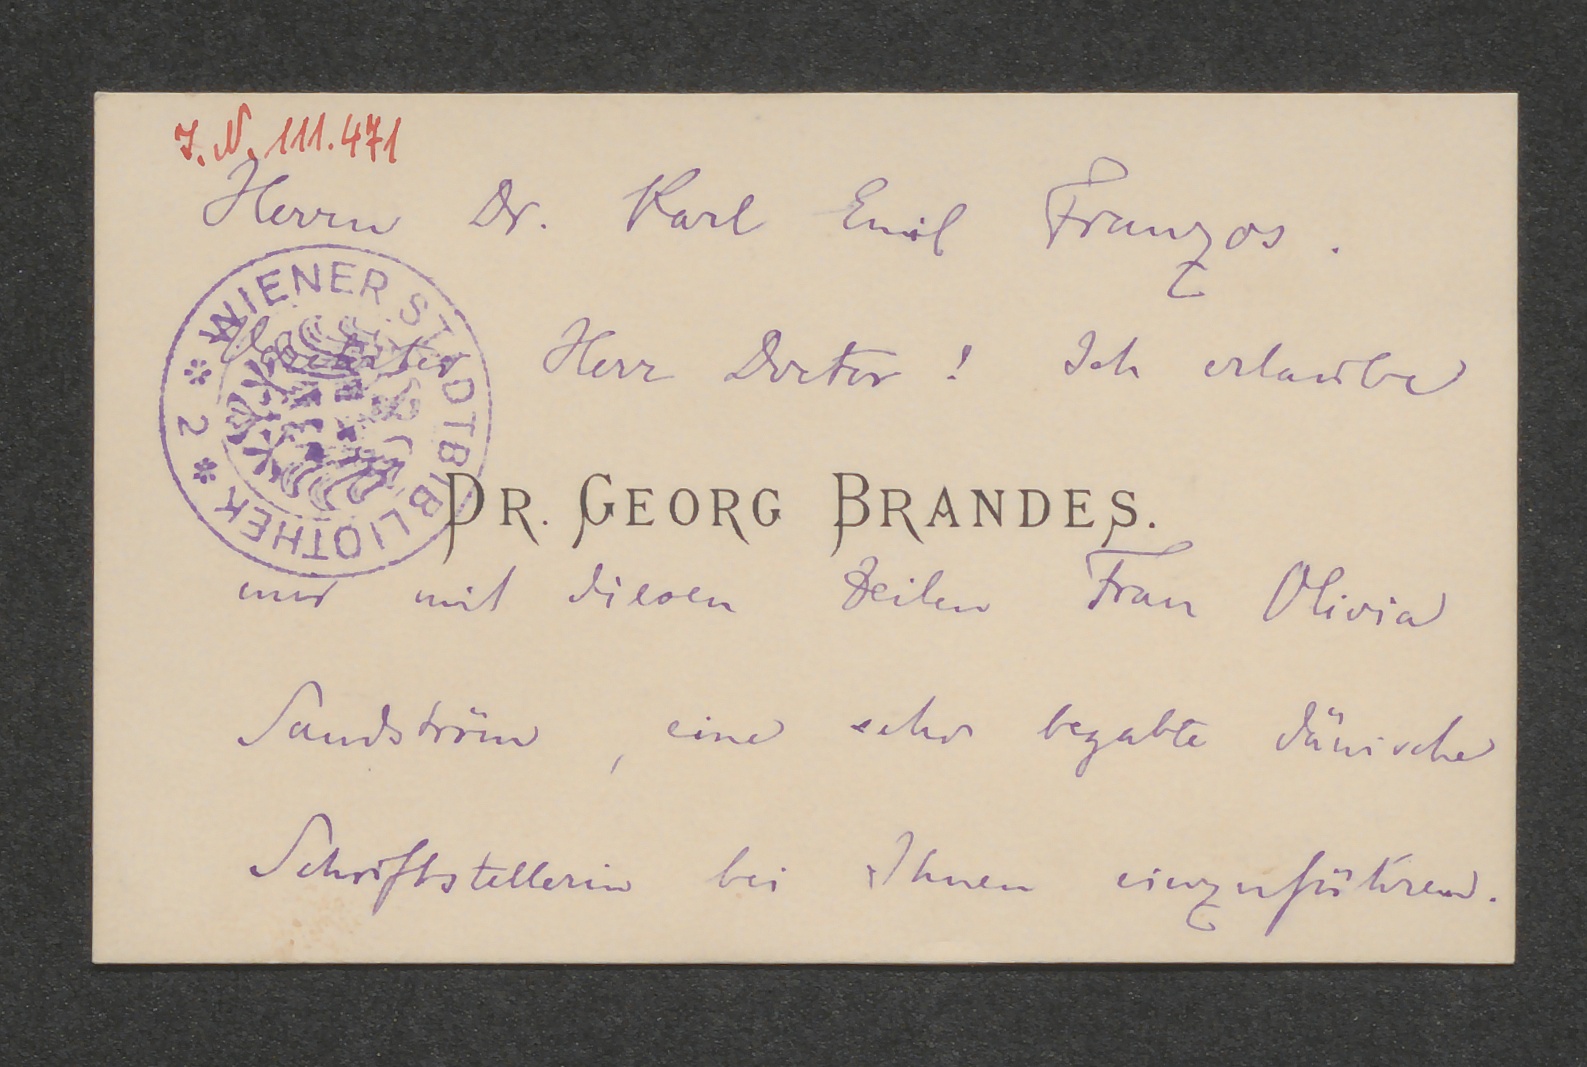 J. N. 111.471
Herrn Dr. Karl Emil Franzos.
WIENER STADTBIBLIOTHEK * 2 *
Geehrter Herr Doctor! Ich erlaube
DR. GEORG BRANDES.
mir mit diesen Zeilen Frau Olivia
Sandström, eine sehr begabte dänische
Schriftstellerin bei Ihnen einzuführen.